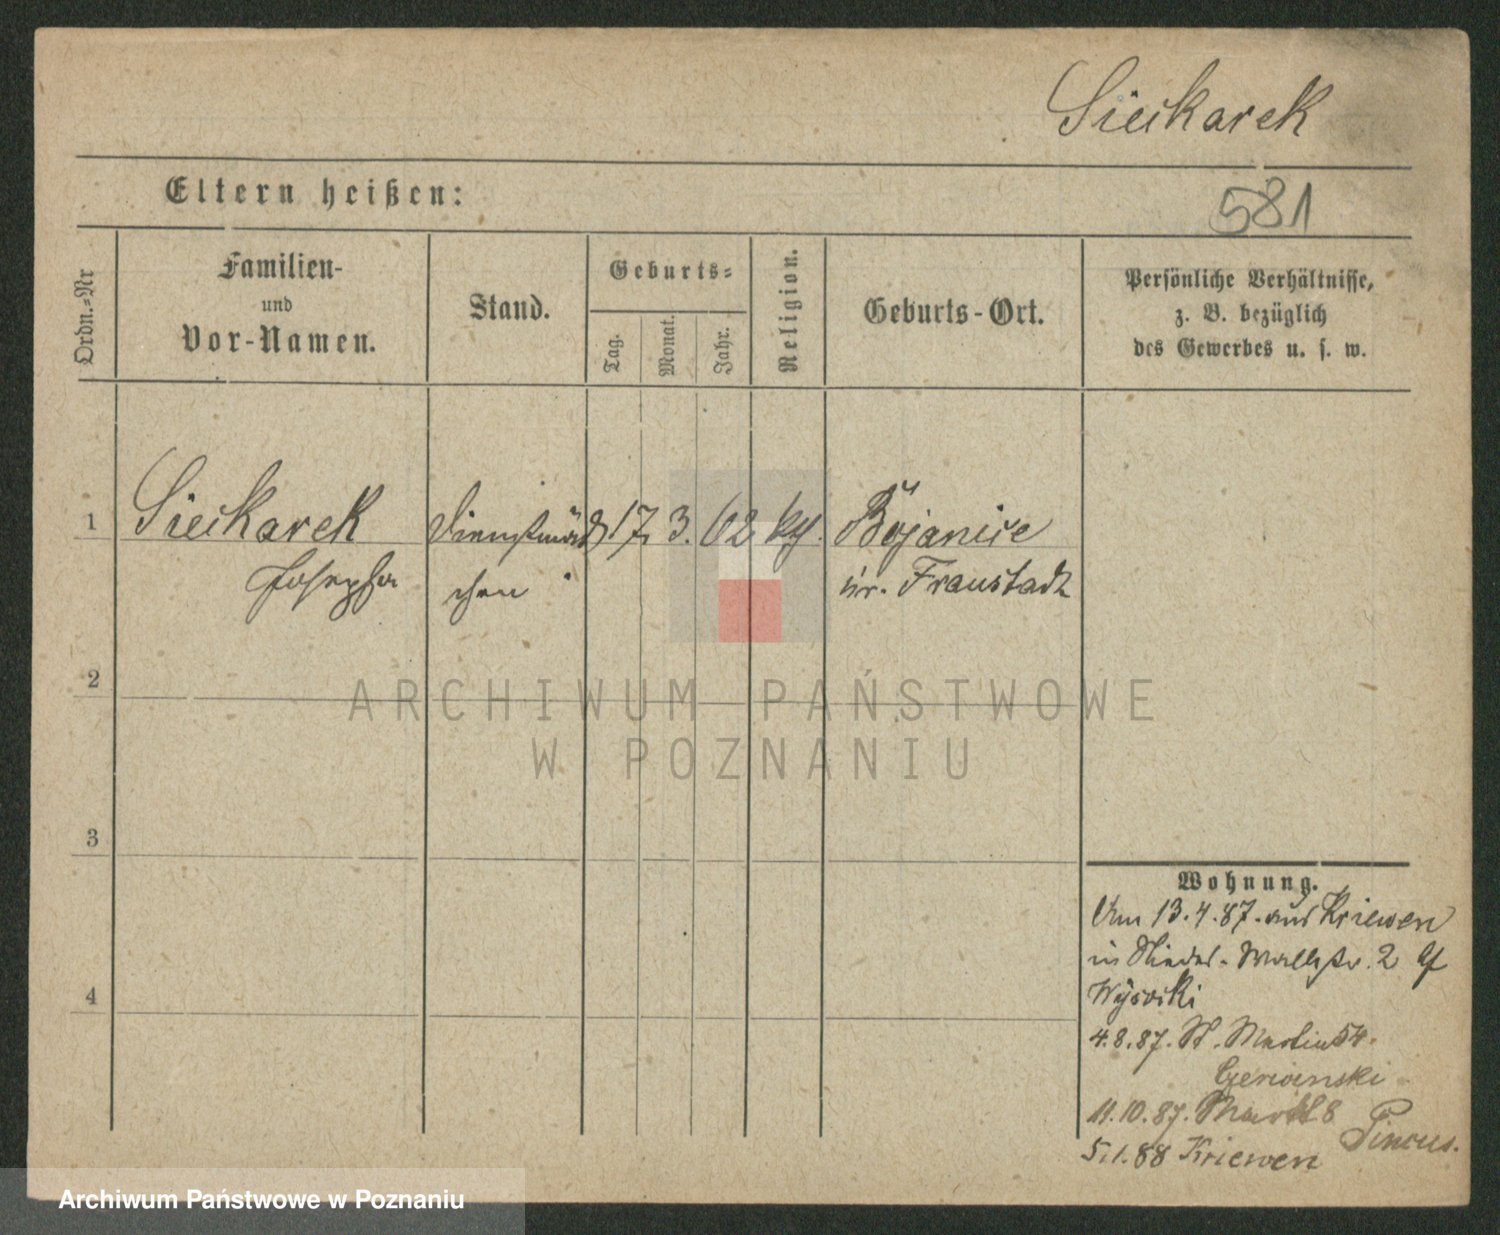 Siećkarek
581
Eltern heißen:
Ordn.=Nr
Familien-
und
Vor-Namen.
Stand.
Geburts=
Tag.
Monat.
Jahr.
Religion.
Geburts-Ort.
Persönliche Verhältnisse,
z. B. bezüglich
des Gewerbes u. s. w.
1
Siećkarek Dienstmäd 17. 3. 62
Bojanice
Josepha chen
kr. Fraustadt
2
3
4
Wohnung.
Am 13.4.87. aus Kriewen
in Nieder-Wallstr. 2
Wysocki
4.8.87. St. Martin 54.
11.10.87. Markt 8
Pincus.
5.1.88 Kriewen
ARCHIWUM PAŃSTWOWE
W POZNANIU
Archiwum Państwowe w Poznaniu